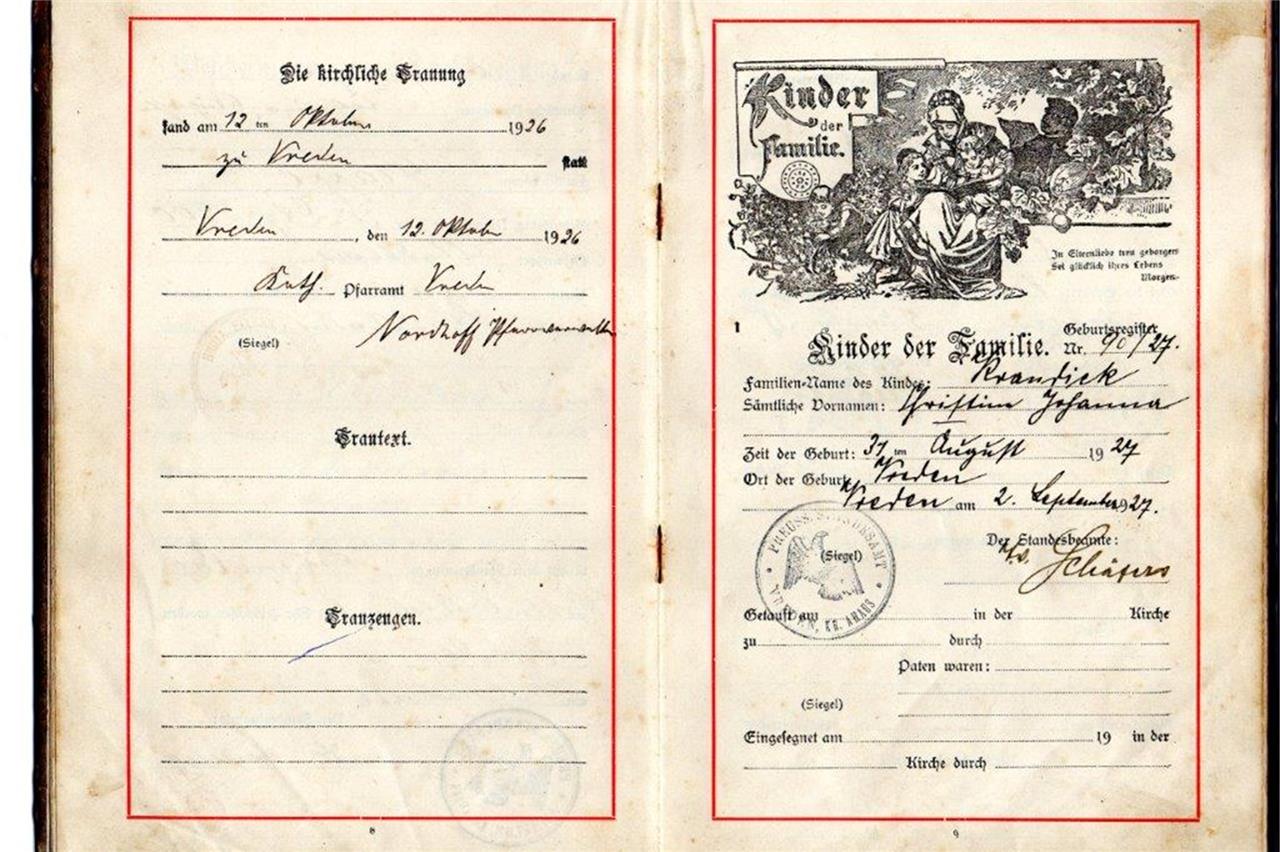 Die kirchliche Trauung
fand am 12 ten Oktober 1926
zu Vreden statt
Vreden, den 12. Oktober 1926
Kath. Pfarramt Vreden
(Siegel) Nordhoff Pfarrverwalter
Trautext.
Trauzeugen.
8
Kinder
der
Familie.
In Elternliebe treu geborgen
Sei glücklich ihres Lebens
Morgen.
1
Geburtsregister
Kinder der Familie. Nr. 90/27.
Familien-Name des Kindes: Krandick
Sämtliche Vornamen: Christine Johanna
Zeit der Geburt: 31 ten August 1927
Ort der Geburt: Vreden
Vreden am 2. September 1927.
Der Standesbeamte:
(Siegel)
PREUSS. STANDESAMT
VREDEN, KR. AHAUS
Schäfers
Getauft am in der Kirche
zu durch
Paten waren:
(Siegel)
Eingesegnet am 19 in der
Kirche durch
9